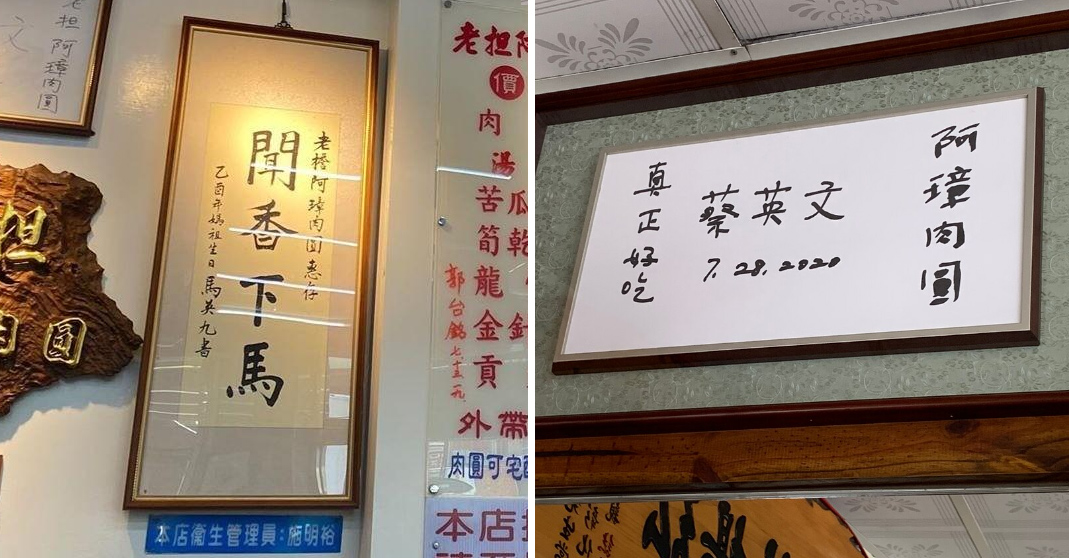 老担阿璋肉圓
文
担
肉圓
老檐阿璋肉圓惠存
聞香下馬
乙酉年媽祖生日 馬英九書
本店衛生管理員:施明裕
老担阿
價
肉
湯
苦瓜
筍乾
龍
金針
貢
郭台銘 七、圭、九
外帶
肉圓可宅配
本店
阿璋肉圓
蔡英文
7.28.2020
真正好吃